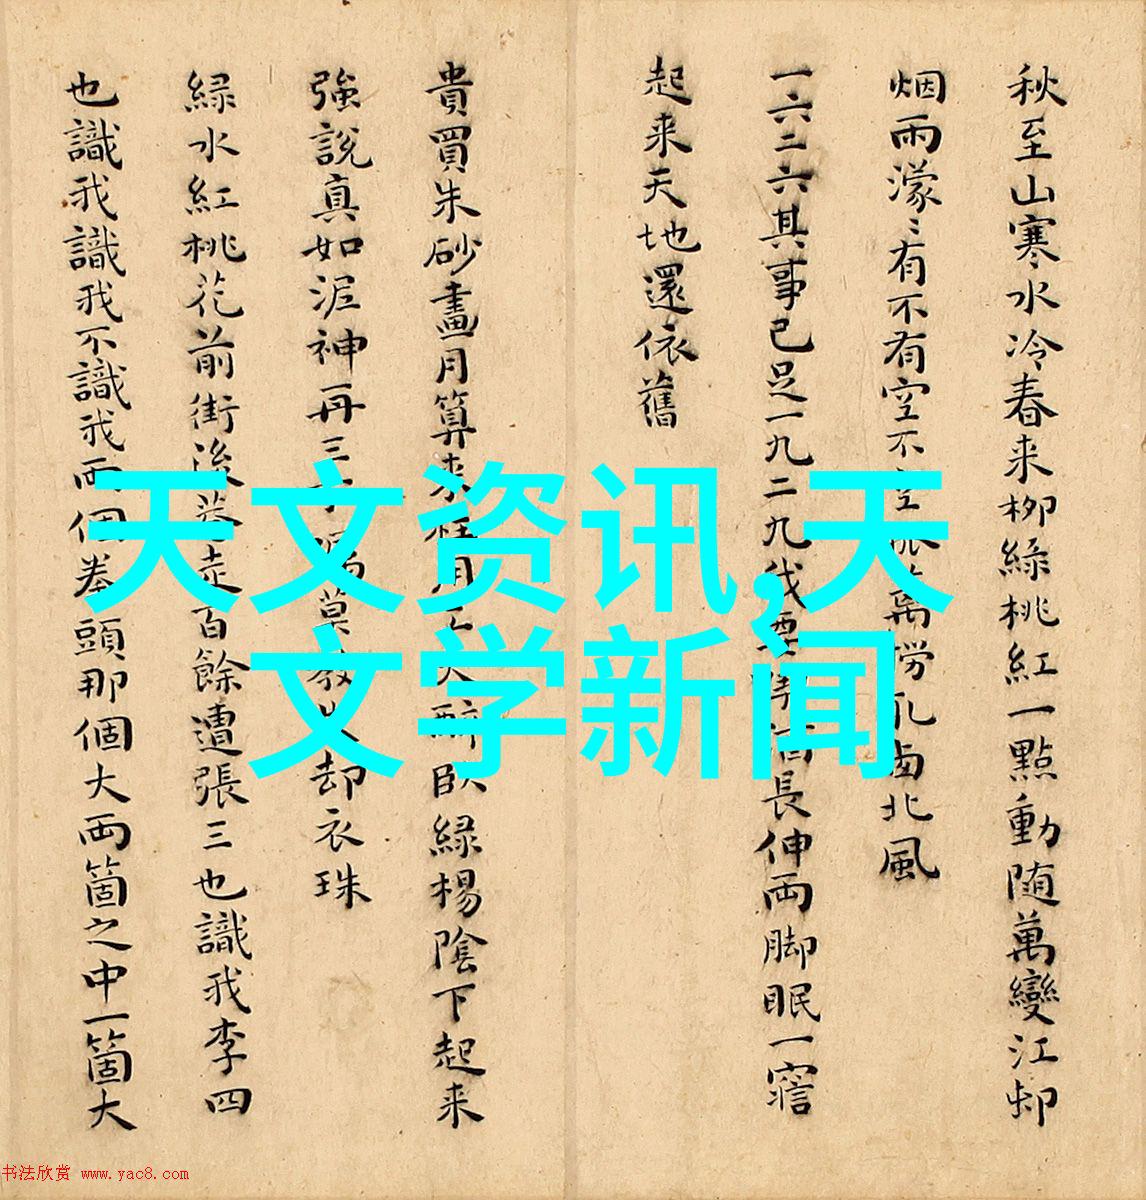 秋至山寒水冷春来柳緑桃紅一點動随萬變江邨
烟雨濛〻有不有空不空
萬撈乱卤北風
一六二六其事已足一九二九我要
長伸两脚眠一寤
起来天地還依舊
貴買朱砂畫月算来
醉臥緑楊陰下起来
強說真如泥神再三
莫教
却衣珠
緑水紅桃花前街後巷走百餘遭張三也識我李四
也識我識我不識我两個拳頭那個大两箇之中一箇大
天文资讯,天
文学新闻
书法欣赏 www.yac8.com